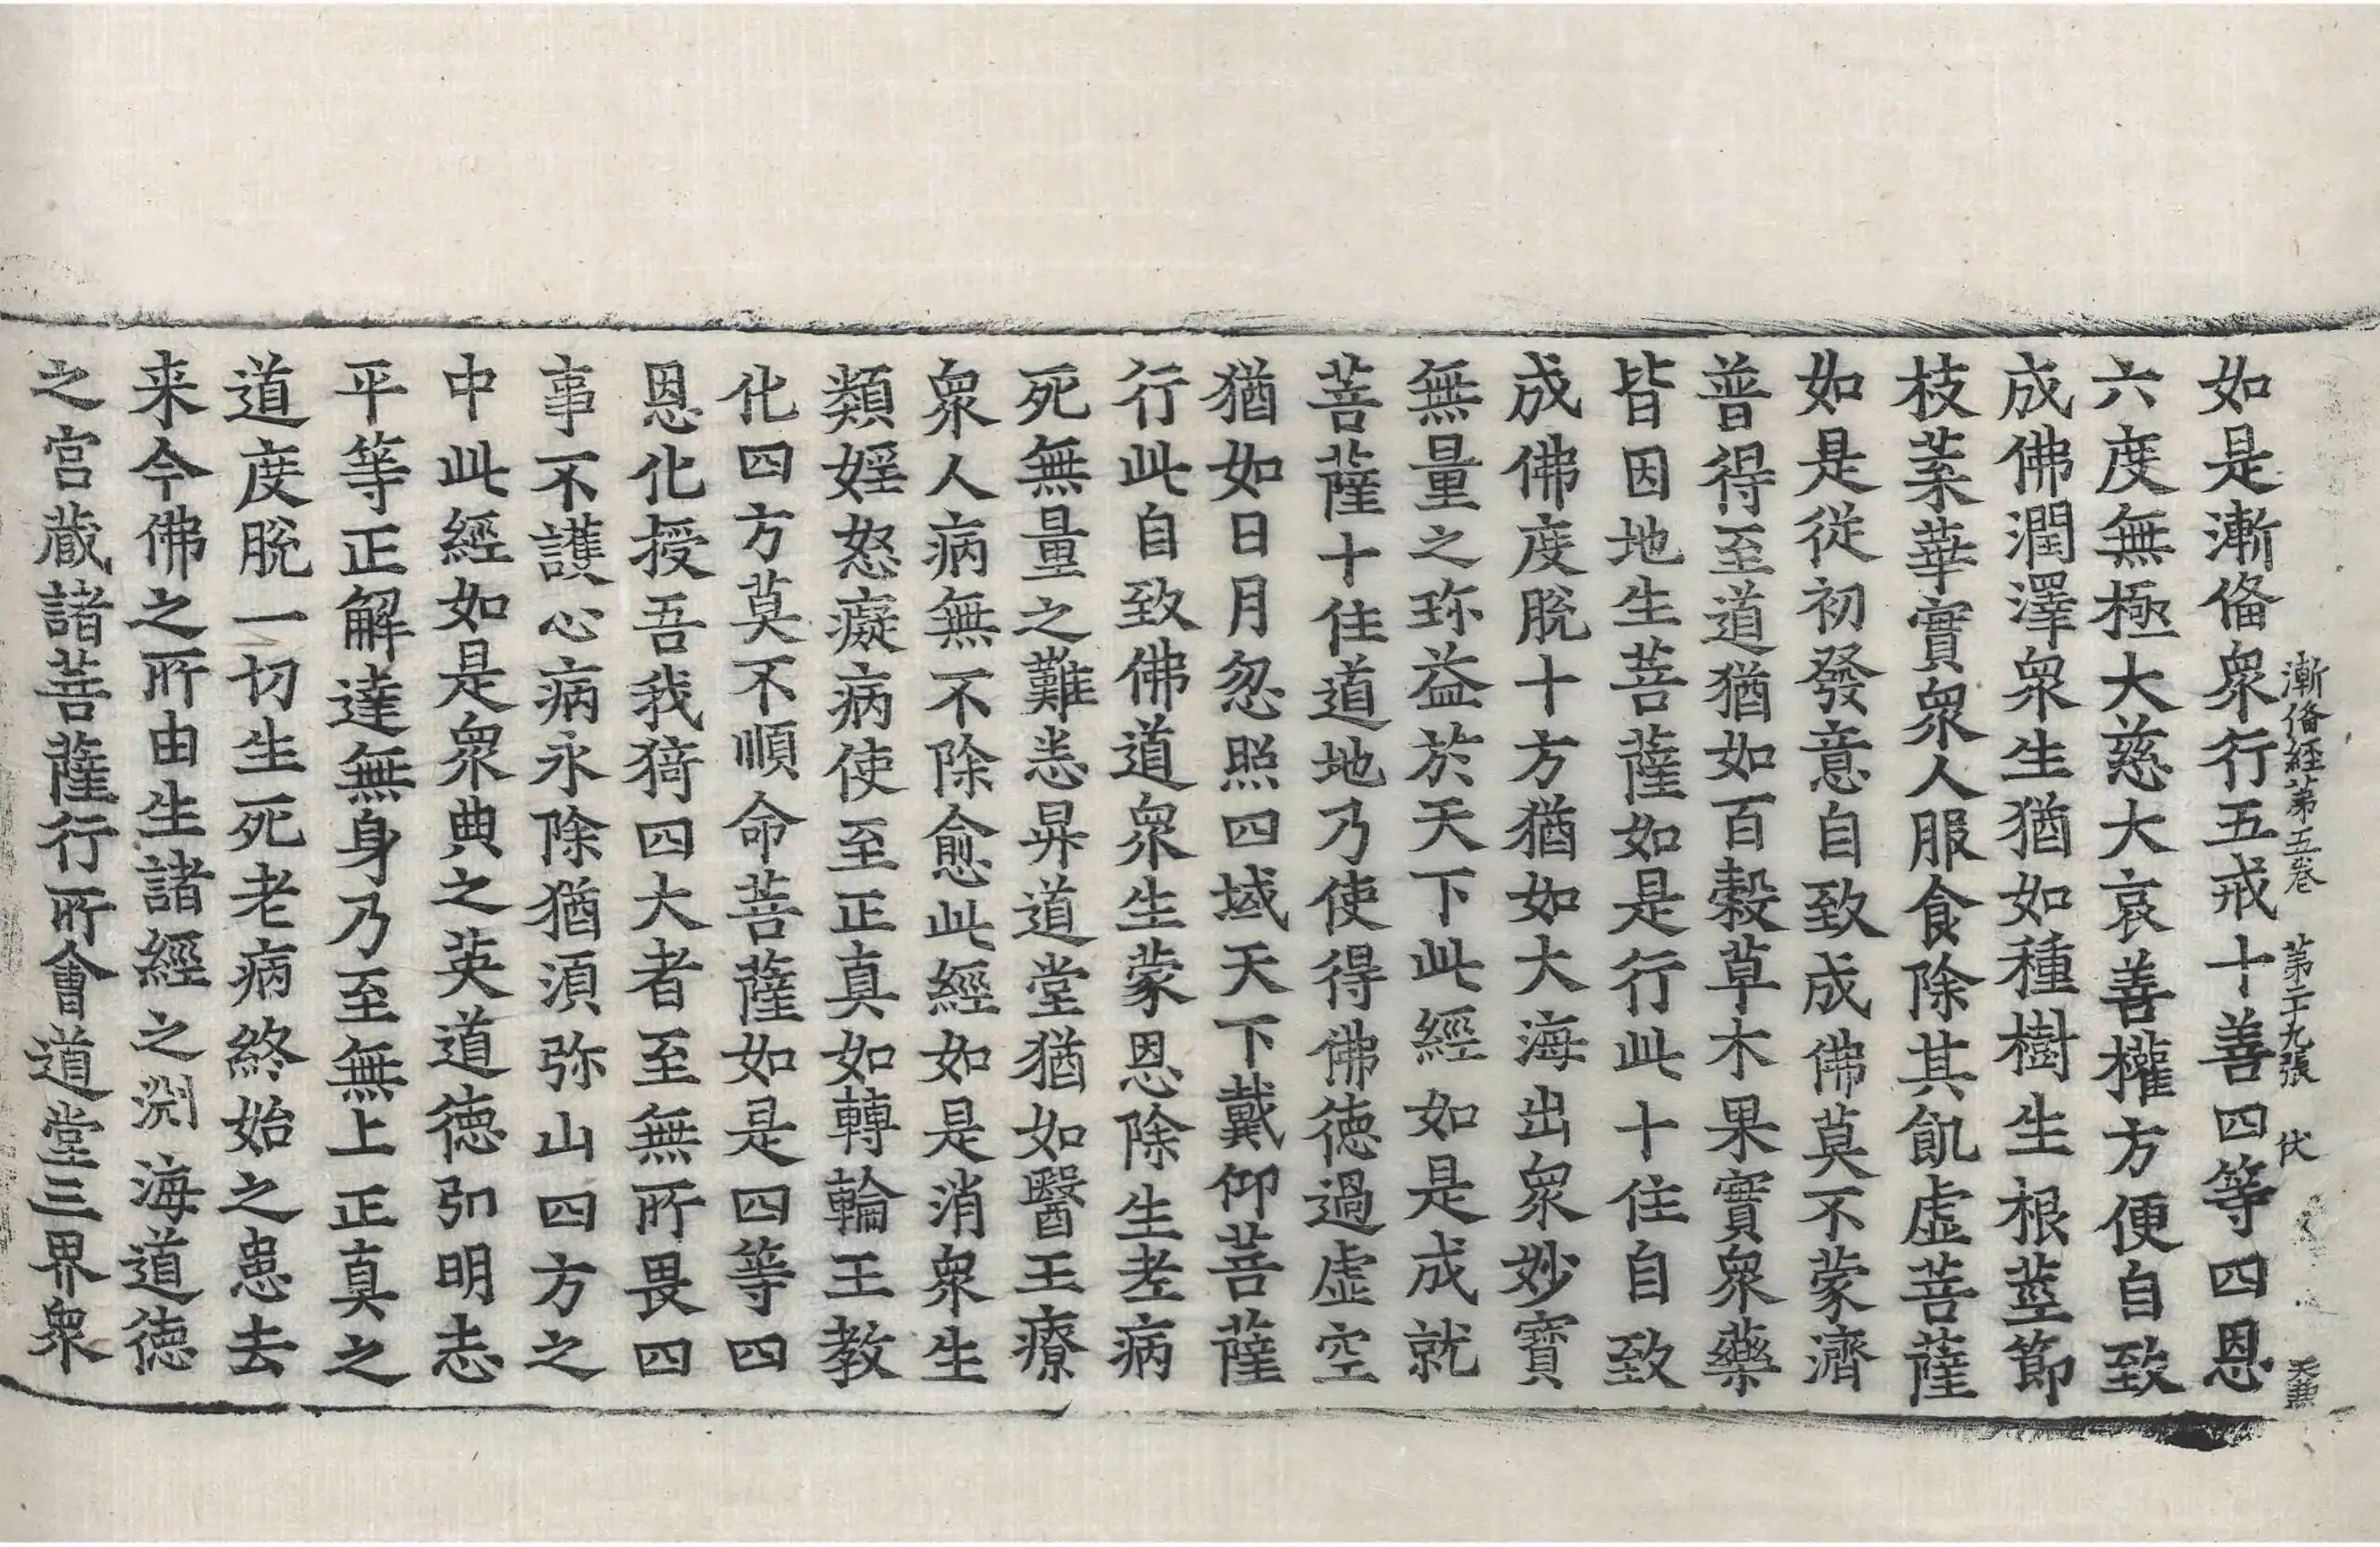 漸偹經第五卷 第二十九張 伏 天𠔥
如是漸偹衆行五戒十善四等四恩
六度無極大慈大哀善權方便自致
成佛潤澤衆生猶如種樹生根莖節
枝葉華實衆人服食除其飢虛菩薩
如是從初發意自致成佛莫不蒙濟
普得至道猶如百穀草木果實衆藥
皆因地生菩薩如是行此十住自致
成佛度脫十方猶如大海出衆妙寶
無量之珎益於天下此經如是成就
菩薩十住道地乃使得佛德過虛空
猶如日月忽照四域天下戴仰菩薩
行此自致佛道衆生蒙恩除生老病
死無量之難悉昇道堂猶如醫王療
衆人病無不除愈此經如是消衆生
類婬怒癡病使至正真如轉輪王教
化四方莫不順命菩薩如是四等四
恩化授吾我猗四大者至無所畏四
事不護心病永除猶須弥山四方之
中此經如是衆典之英道德弘明志
平等正解達無身乃至無上正真之
道度脫一切生死老病終始之患去
来今佛之所由生諸經之渕海道德
之宮藏諸菩薩行所會道堂三界衆